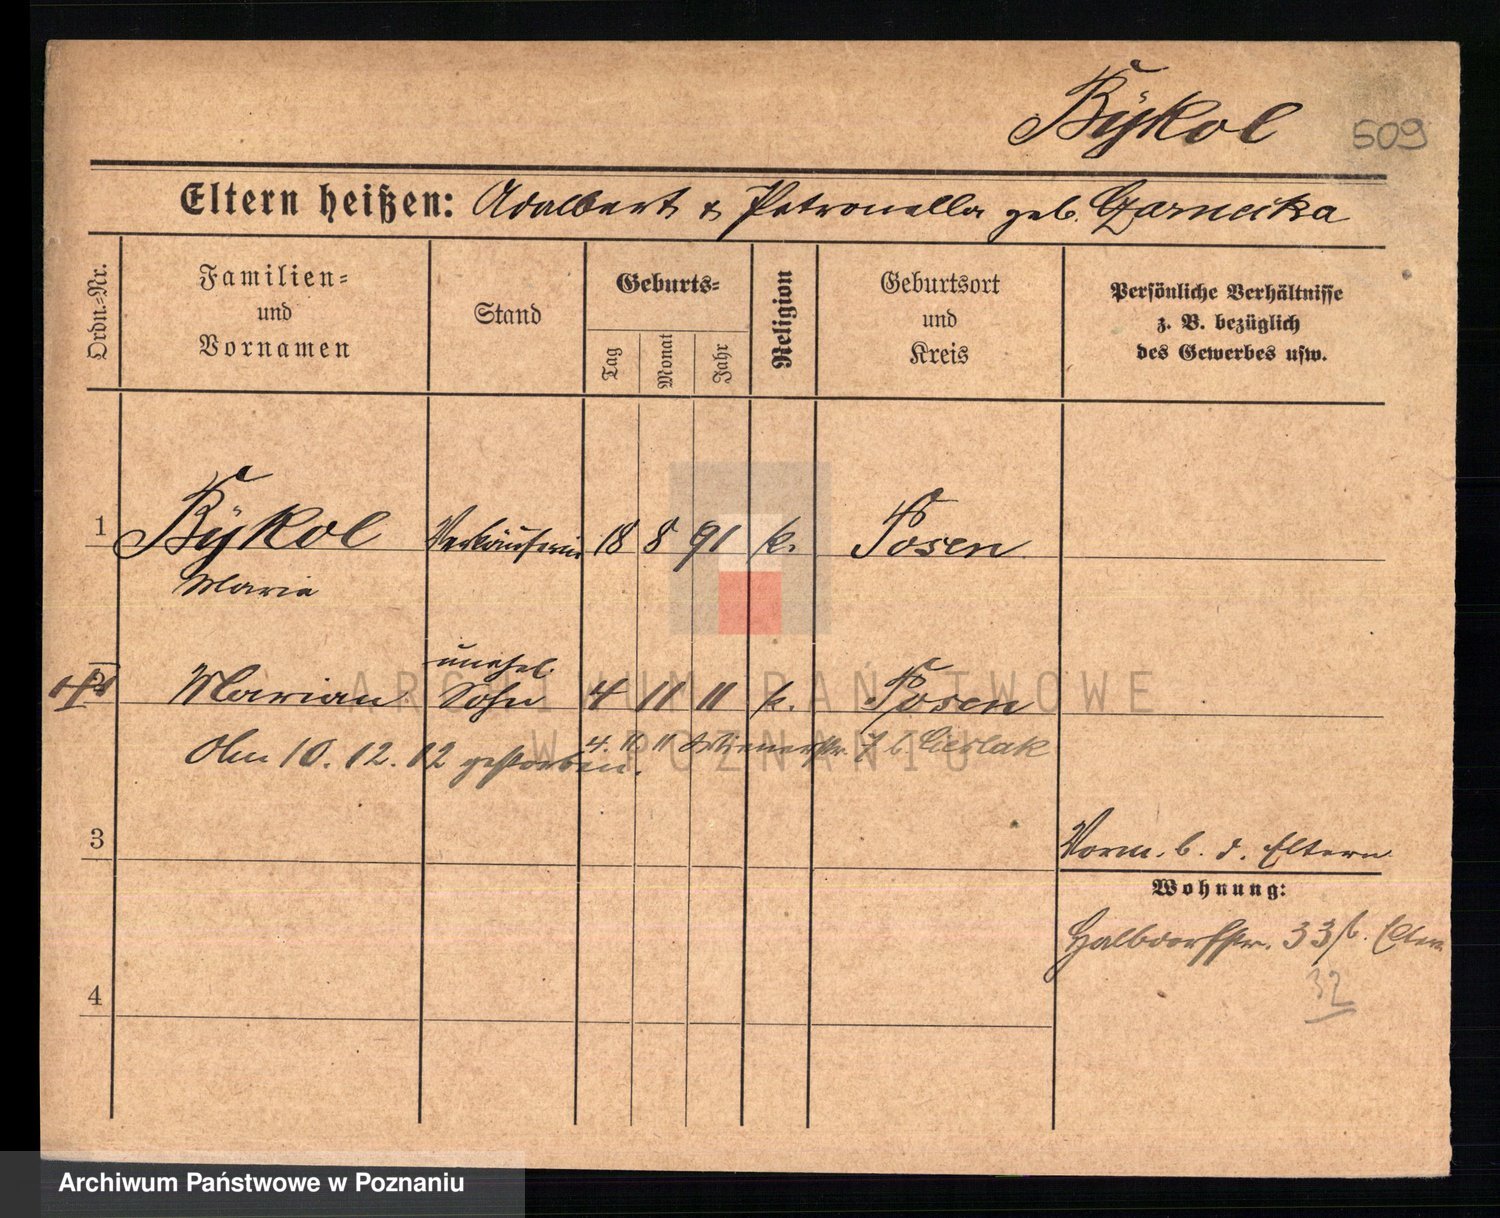 Bÿkol 509
Eltern heißen: Adalbert & Petronella geb. Garnecka
Ordn.-Nr.
Familien-
und
Vornamen
Stand
Geburts-
Tag
Monat
Jahr
Religion
Geburtsort
und
Kreis
Persönliche Verhältnisse
z. B. bezüglich
des Gewerbes usw.
1 Bÿkol Verkäuferin 18 8 91 k. Posen
Maria
unehel.
2 Marian Sohn 4 11 11 k. Posen
ARCHIWUM PAŃSTWOWE
W POZNANIU
4. 11 11 Wienerstr. 7 b. Cieslak
Am 10. 12. 12 gestorben.
3
Vorm. b. d. Eltern
Wohnung:
Halbdorfstr. 33 b. Eltern
32
4
Archiwum Państwowe w Poznaniu